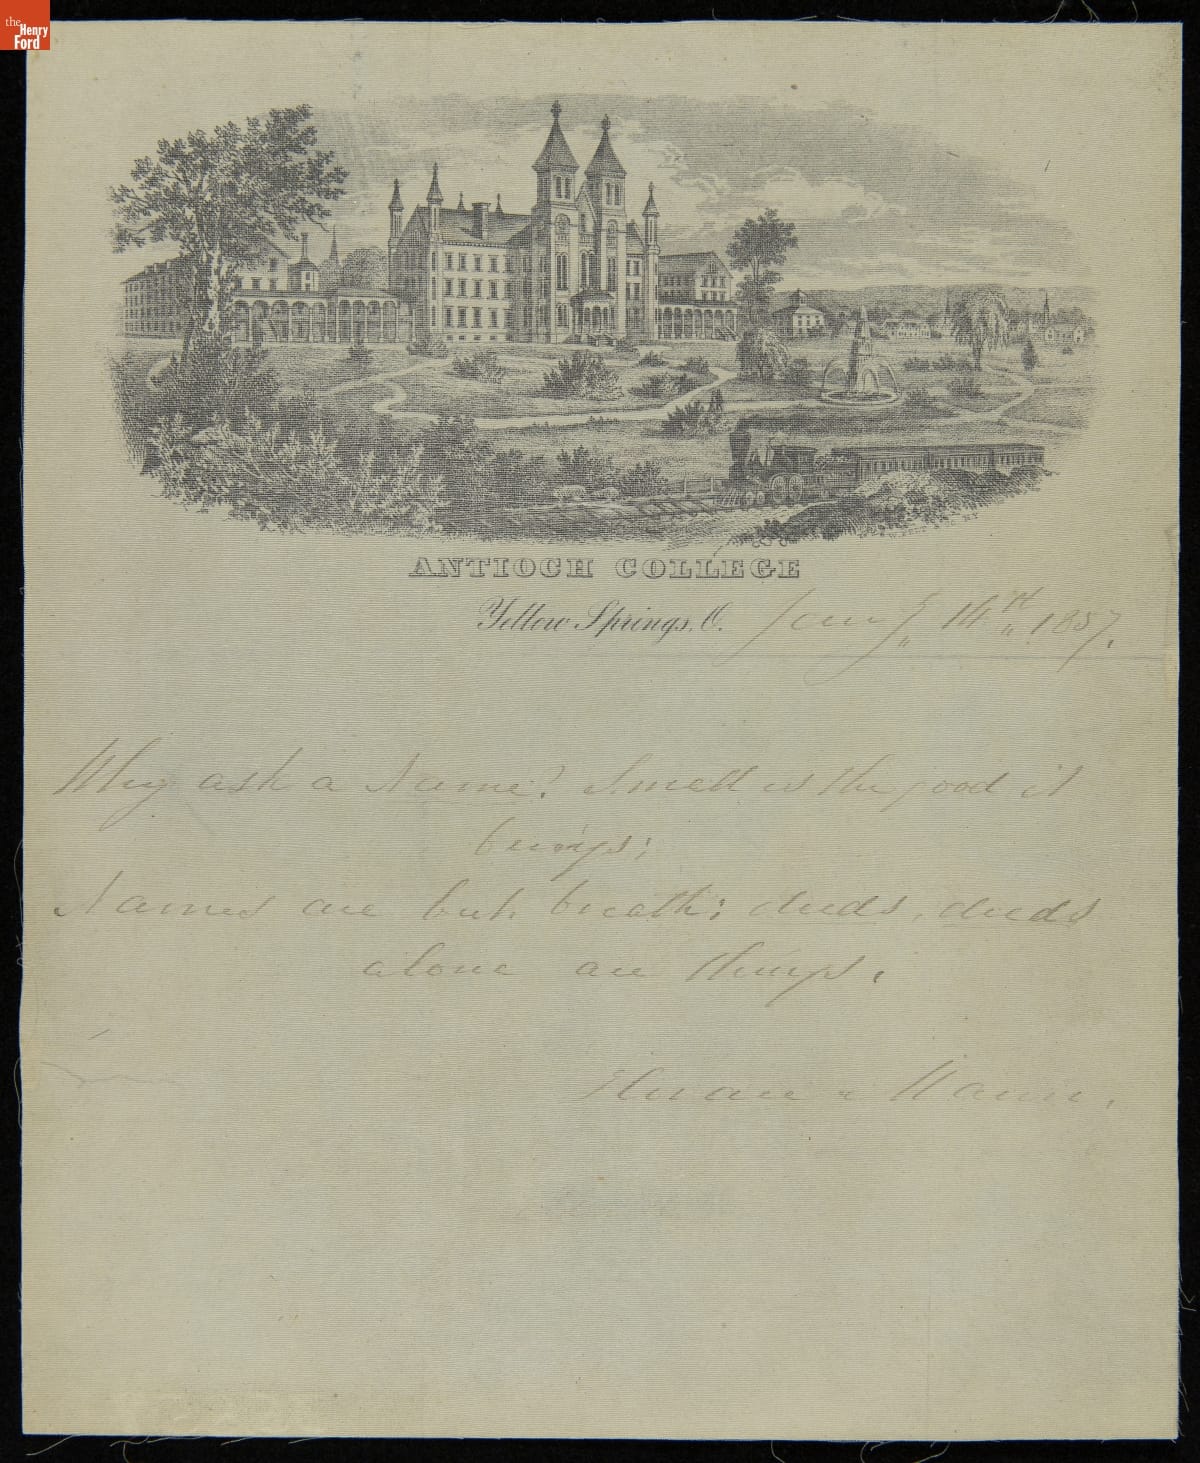 the
Henry
Ford
ANTIOCH COLLEGE
Yellow Springs, O. Jany 14th 1857.
Why ask a Name? Small is the good it
brings;
Names are but breath; deeds, deeds
alone are things.
Horace Mann.